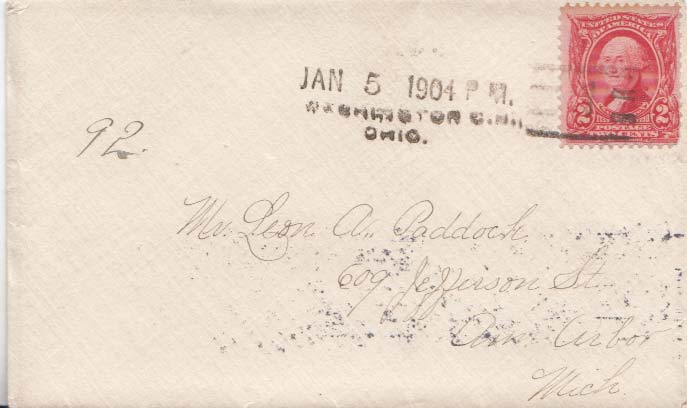 UNITED STATES
OF AMERICA
2 2
POSTAGE
TWO CENTS
JAN 5 1904 P M.
WASHINGTON C.H.,
OHIO.
92.
Mr. Leon A. Paddock
609 Jefferson St.
Ann Arbor
Mich.